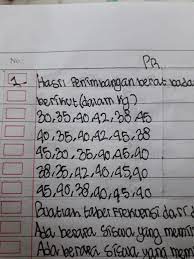 No.:
PR
1. Hasil Penimbangan berat bada
berikut (dalam kg)
30,35,40,42,38,45
40,35,40,42,45,38
45,30,35,40,45,40
38,35,42,40,45,40
45,40,38,40,45,40
Buatlah tabel frekuensi dari d
Ada berapa siswa yang memi
Ada berapa siswa yang mem